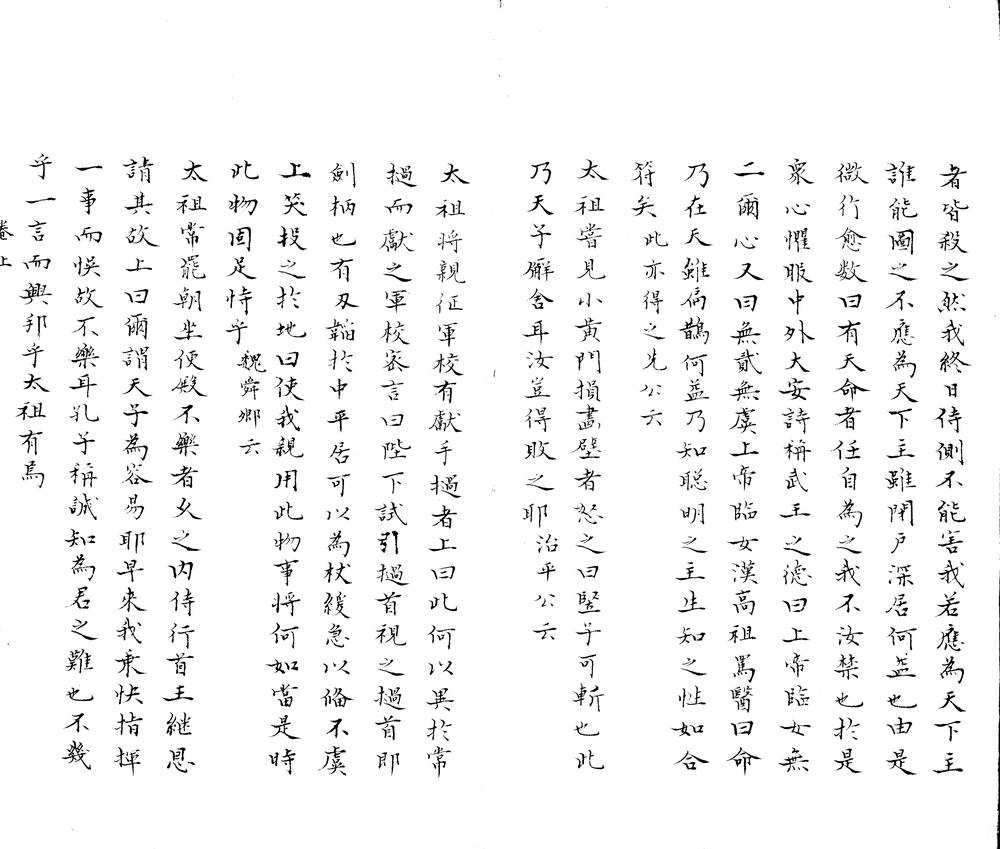 者皆殺之然我終日侍側不能害我若應為天下主
誰能圖之不應為天下主雖閉户深居何益也由是
微行愈数曰有天命者任自為之我不汝禁也於是
衆心懼服中外大安詩稱武王之德曰上帝臨女無
二爾心又曰無貳無虞上帝臨女漢高祖罵醫曰命
乃在天雖扁鵲何益乃知聪明之主生知之性如合
符矣此亦得之先公云
太祖嘗見小黄門損畫壁者怒之曰竪子可斬也此
乃天子廨舍耳汝豈得敗之耶治平公云
太祖将親征軍校有獻手撾者上曰此何以異於常
撾而獻之軍校宻言曰陛下試引撾首視之撾首即
劍柄也有刃韜於中平居可以為杖緩急以偹不虞
上笑投之於地曰使我親用此物事将何如當是時
此物固足恃乎魏舜卿云
太祖常罷朝坐便殿不樂者久之内侍行首王継恩
請其故上曰爾謂天子為容易耶早来我乘快指揮
一事而悮故不樂耳孔子稱誠知為君之難也不幾
乎一言而興邦乎太祖有焉
卷上